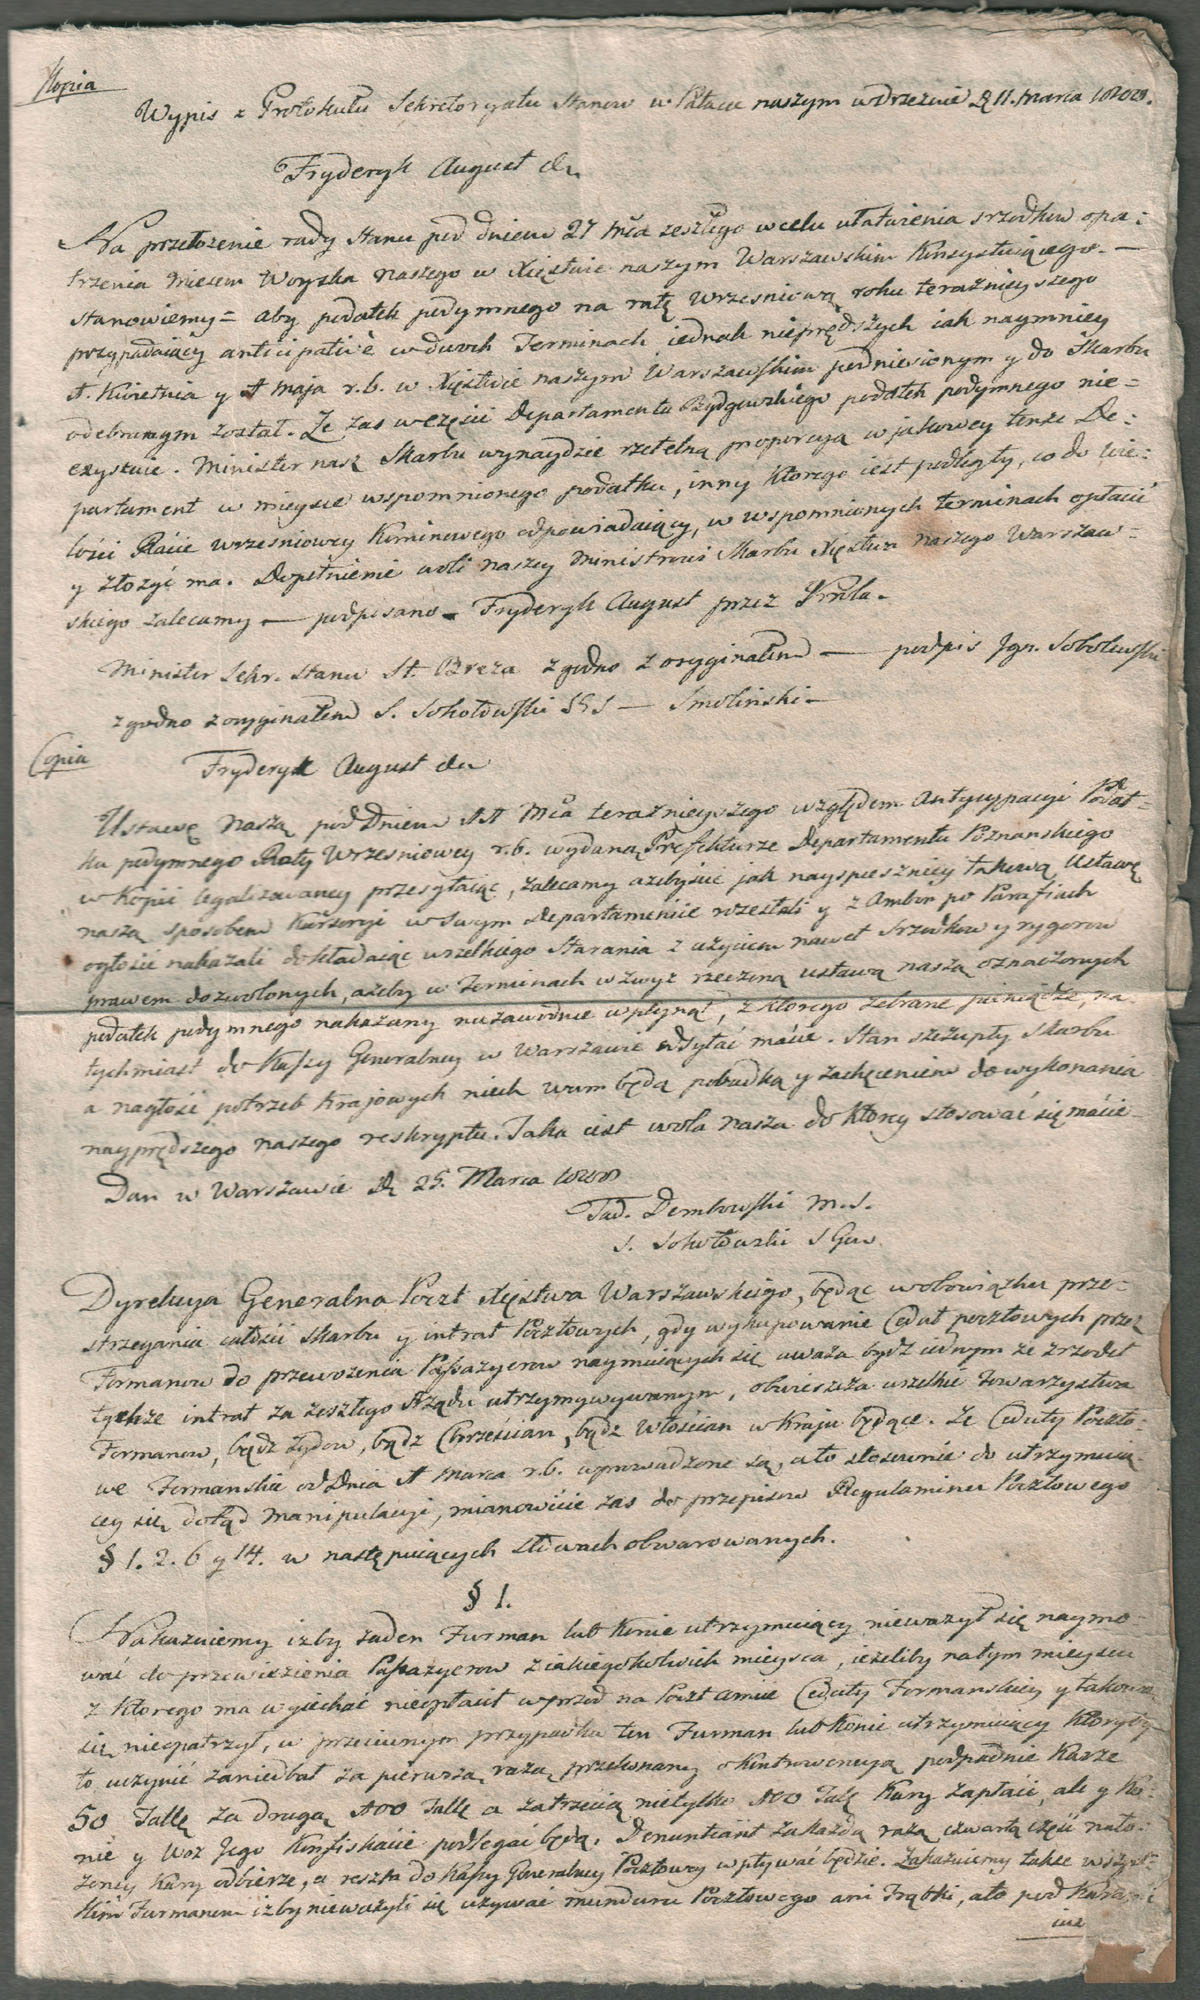 Kopia
Wypis z Protokułu Sekretoryatu Stanow w Pałacu naszym w Dreznie D. 11. Marca 1808.
Fryderyk August etc
Na przełożenie rady Stanu pod dniem 27 mca zeszłego w celu ułatwienia srzodkow opa-
trzenia Miesem Woyska Naszego w Xięstwie naszym Warszawskim Konsystuiącego —
stanowiemy = aby podatek podymnego na ratę wrzesniową roku terazniejszego
przypadaiący anticipative w dwoch Terminach iednak nieprędszych iak naymniey
1. Kwietnia y 1 Maja r.b. w Xięstwie naszym Warszawskim podniesionym y do Skarbu
odebranym został. Ze zas w części Departamentu Bydgowskiego podatek podymnego nie-
exystuie. Minister nasz Skarbu wynaydzie rzetelną proporcyą w jakowey tenze De-
partament w mieysce wspomnionego podatku, inny ktorego iest podległy, co do wie-
lości Racie wrzesniowey Kominowego odpowiadaiący, w wspomnionych terminach opłacić
y złozyć ma. Dopełnienie woli naszey Ministrowi Skarbu Xięstwa naszego Warszaw-
skiego zalecamy — podpisano — Fryderyk August przez Krola -
Minister Sekr. Stanu St. Breza zgodno z oryginałem — podpis Ign. Sobolewski
zgodno z oryginałem S. Sokołowski SGS — Smolinski —
Copia
Fryderyk August etc
Ustawę Naszą pod Dniem 11 Mca teraznieyszego względem Antycypacyi Podat-
ku podymnego Raty Wrzesniowey r.b. wydaną Prefekturze Departamentu Poznanskiego
w Kopii legalizowaney przesyłaiąc, zalecamy azebyscie jak nayspieszniey takową Ustawę
naszą sposobem Kursoryi w Swym Departamencie rozesłali y z Ambon po Parafiach
ogłosić nakazali dokładaiąc wszelkiego Starania z uzyciem nawet Srzodkow y rygorow
prawem dozwolonych, azeby w Terminach wzwyz rzeczoną ustawą naszą oznaczonych
podatek podymnego nakazany niezawodnie wpłynął, z ktorego zebrane pieniądze, na-
tychmiast do Kassy Generalney w Warszawie odsyłać macie. Stan szczupły Skarbu
a nagłość potrzeb Krajowych niech wam będą pobudką y zachęceniem do wykonania
nayprędszego naszego reskryptu. Taka iest wola nasza do ktorey stosować się macie
Dan w Warszawie D. 25. Marca 1808
Tad. Dembowski M.S.
S. Sokołowski S Gen
Dyrekcya Generalna Poczt Xięstwa Warszawskiego, będąc w obowiązku prze-
strzegania całości Skarbu y intrat Pocztowych, gdy wykupowanie Ceduł pocztowych przez
Formanow do przewozenia Passazyerow naymuiących się uwaza bydz iednym ze zrzodeł
tychze intrat za zeszłego Rządu utrzymywywanym, obwieszcza wszelkie Towarzystwa
Formanow, bądz Zydow, bądz Chrześcian, bądz Włościan w Kraju będące. Ze Ceduły Poczto-
we Formanskie od Dnia 1 Marca r.b. wprowadzone są, a to stosownie do utrzymuią-
cey się dotąd Manipulacyi, mianowicie zas do przepisow Regulaminu Pocztowego
§ 1. 2. 6 y 14. w następuiących słowach obwarowanych.
§ 1.
Nakazuiemy izby zaden Furman lub Konie utrzymuiący niewazył się naymo-
wać do przewiezienia Passazyerow z iakiegokolwiek mieysca, iezeliby na tym mieyscu
z ktorego ma wyiechać nieopłacił wprzod na Poczt Amcie Ceduły Formanskiey y takową
się nieopatrzył, w przeciwnym przypadku ten Furman lub Konie utrzymuiący ktoryby
to uczynić zaniedbał za pierwszą razą przekonany o Kontrawencyą podpadnie Karze
50 Tall. za drugą 100 Tall. a za trzecią nietylko 100 Tal. Kary zapłaci, ale y Ko-
nie y Woz Jego Konfiskacie podlegać będą. Denuntiant za kazdą razą czwartą część nało-
zoney Kary odbierze, a reszta do Kassy Generalney Pocztowey wpływać będzie. Zakazuiemy takze wszyst-
kim Furmanom izby niewazyli się uzywac munduru Pocztowego ani Trąbki, a to pod Kara-